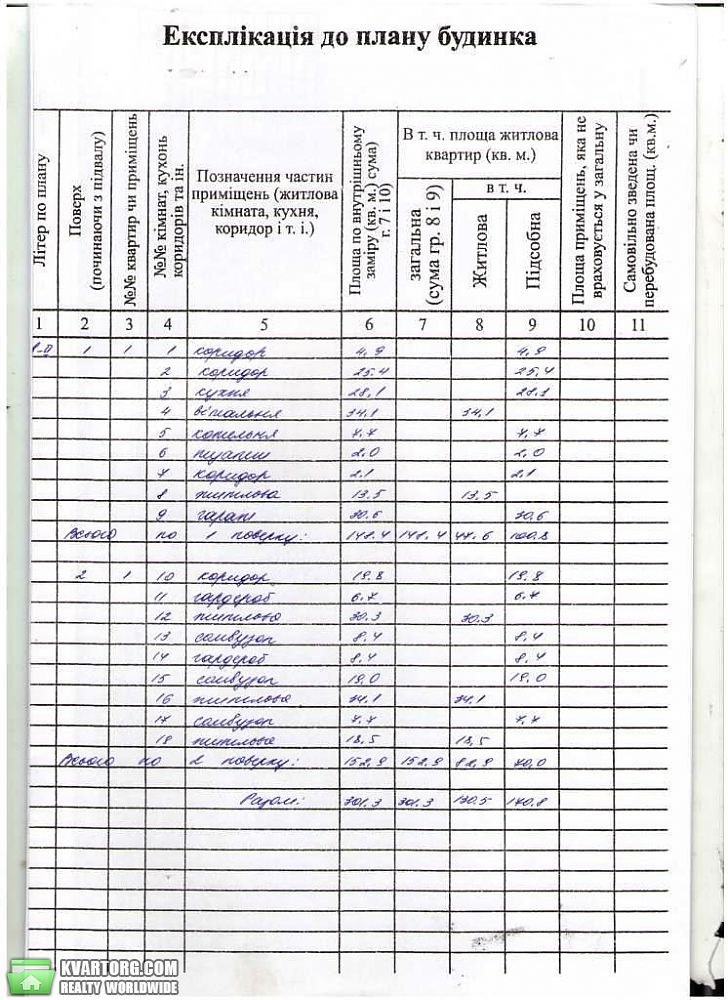 Експлікація до плану будинка
Літер по плану
Поверх (починаючи з підвалу)
№№ квартир чи приміщень
№№ кімнат, кухонь коридорів та ін.
Позначення частин приміщень (житлова кімната, кухня, коридор і т. і.)
Площа по внутрішньому заміру (кв. м.) сума) г. 7 і 10)
В т. ч. площа житлова квартир (кв. м.)
загальна (сума гр. 8 і 9)
в т. ч.
Житлова
Підсобна
Площа приміщень, яка не враховується у загальну
Самовільно зведена чи перебудована площ, (кв.м.)
1 2 3 4 5 6 7 8 9 10 11
1 1 1 коридор 4,9 4,9
2 коридор 25,4 25,4
3 кухня 28,1 28,1
4 вітальня 34,1 34,1
5 котельня 7,7 7,7
6 2,0 2,0
7 коридор 2,1 2,1
8 житлова 13,5 13,5
9 гараж 30,6 30,6
Всього по 1 поверху: 148.4 148.4 47.6 100.8
2 1 10 коридор 19.8 19.8
11 гардероб 6.7 6.7
12 житлова 30.3 30.3
13 санвузол 8,4 8,4
14 гардероб 8,4 8,4
15 санвузол 19,0 19,0
16 житлова 34,1 34,1
17 санвузол 7,7 7,7
18 житлова 18,5 18,5
Всього по 2 поверху: 152,9 152,9 82,9 70,0
Разом: 301.3 301.3 130.5 170.8
KVARTORG.COM
REALTY WORLDWIDE